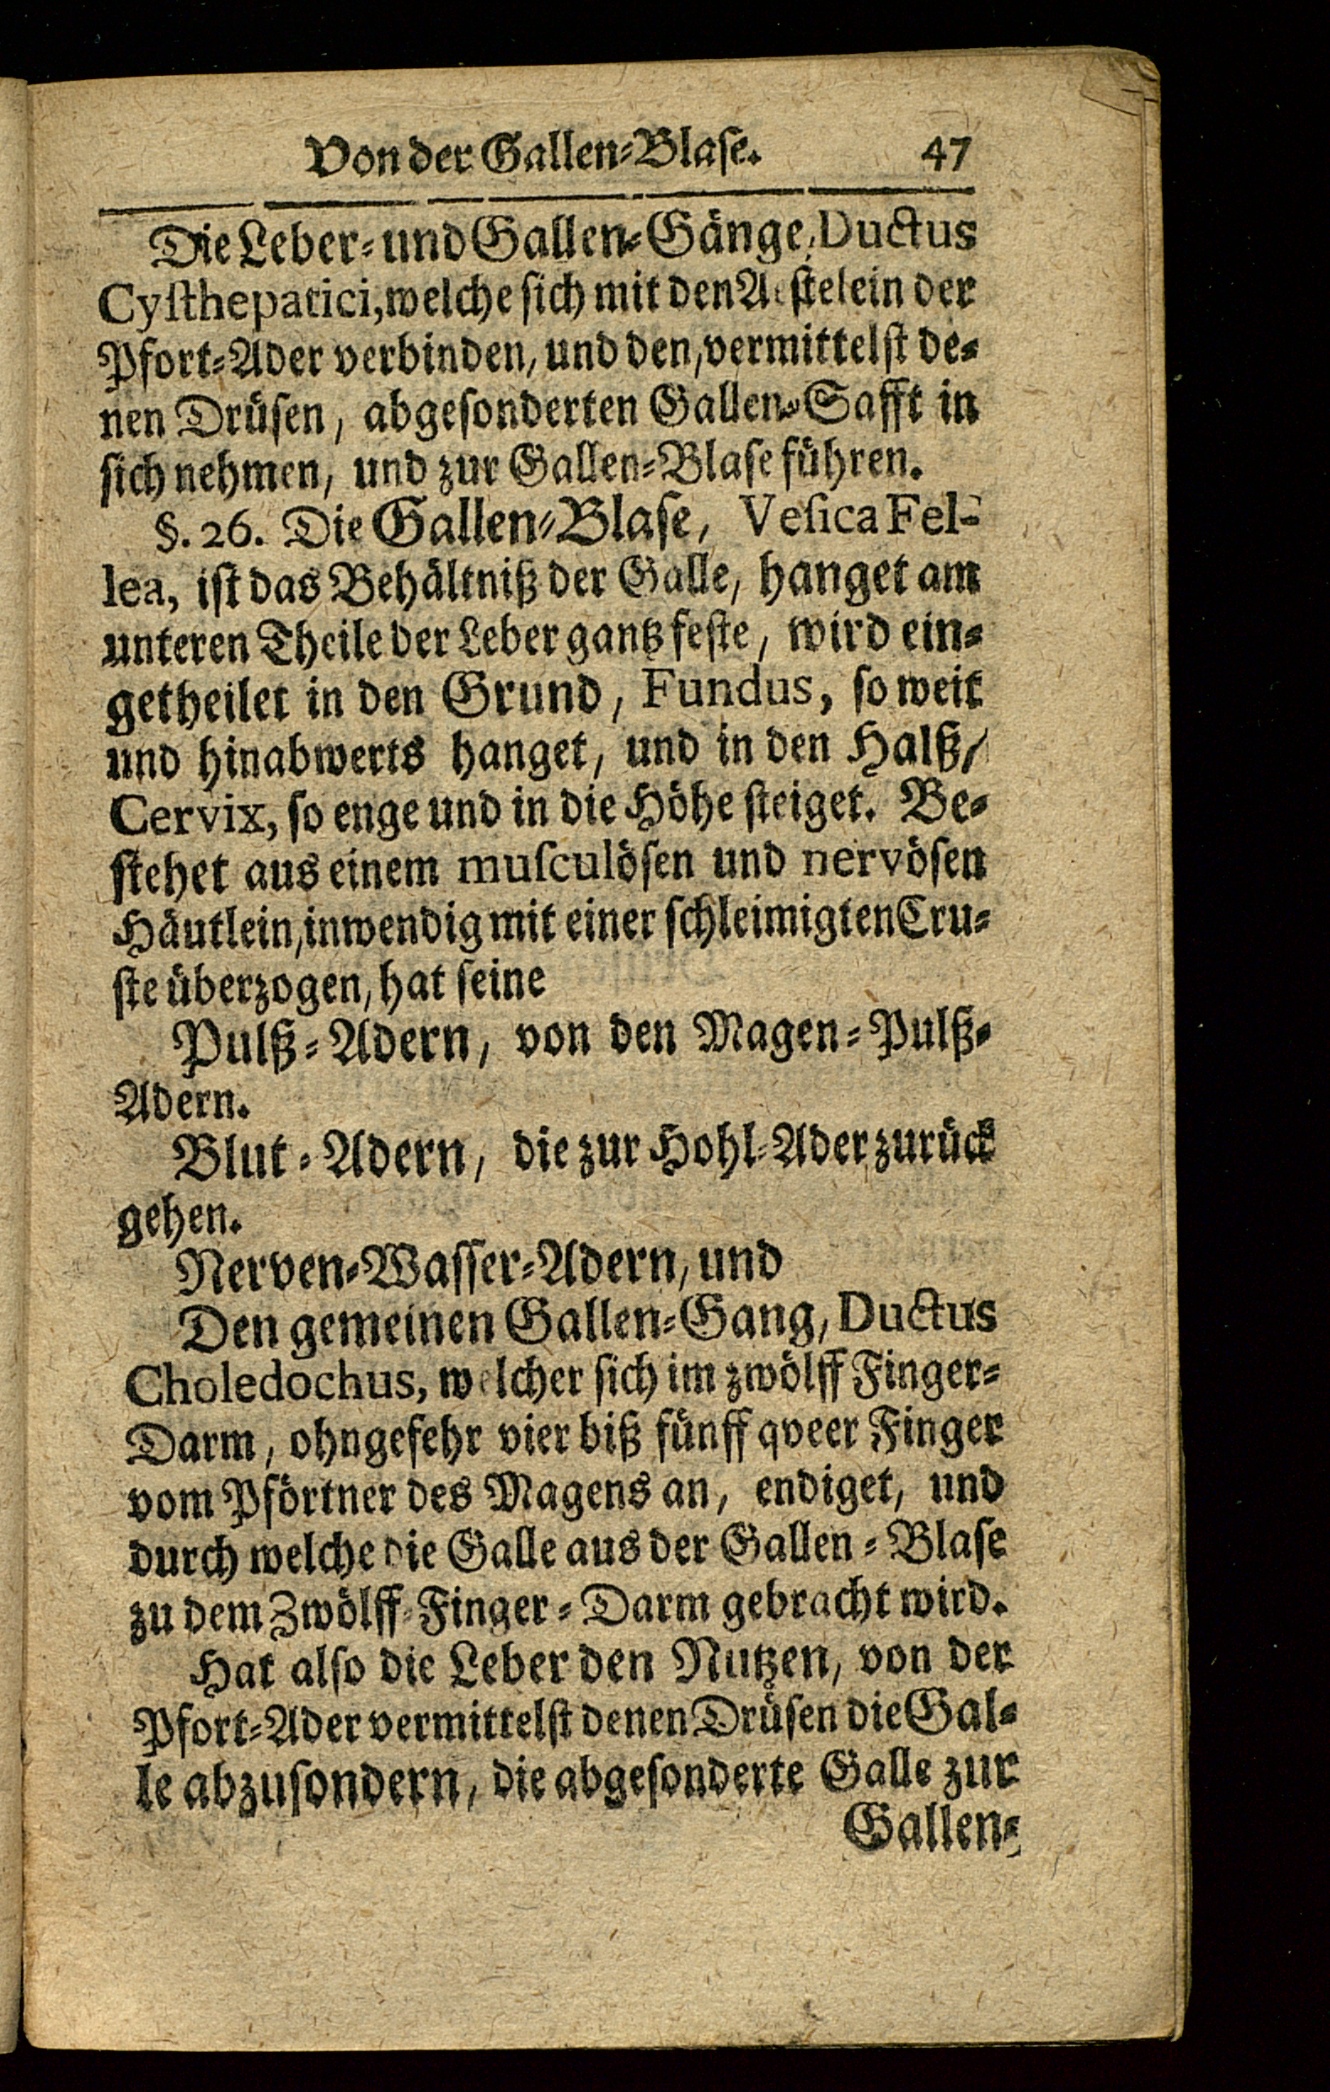 Von der Gallen-Blase. 47
Die Leber- und Gallen-Gänge, Ductus
Cysthepatici, welche sich mit den Aestelein der
Pfort-Ader verbinden, und den, vermittelst de-
nen Drüsen, abgesonderten Gallen-Safft in
sich nehmen, und zur Gallen-Blase führen.
§. 26. Die Gallen-Blase, Vesica Fel-
lea, ist das Behältniß der Galle, hanget am
unteren Theile der Leber gantz feste, wird ein-
getheilet in den Grund, Fundus, so weit
und hinabwerts hanget, und in den Halß/
Cervix, so enge und in die Höhe steiget. Be-
stehet aus einem musculösen und nervösen
Häutlein, inwendig mit einer schleimigten Cru-
ste überzogen, hat seine
Pulß-Adern, von den Magen-Pulß-
Adern.
Blut-Adern, die zur Hohl-Ader zurück
gehen.
Nerven-Wasser-Adern, und
Den gemeinen Gallen-Gang, Ductus
Choledochus, welcher sich im zwölff Finger-
Darm, ohngefehr vier biß fünff qveer Finger
vom Pförtner des Magens an, endiget, und
durch welche die Galle aus der Gallen-Blase
zu dem Zwölff-Finger-Darm gebracht wird.
Hat also die Leber den Nutzen, von der
Pfort-Ader vermittelst denen Drüsen die Gal-
le abzusondern, die abgesonderte Galle zur
Gallen-